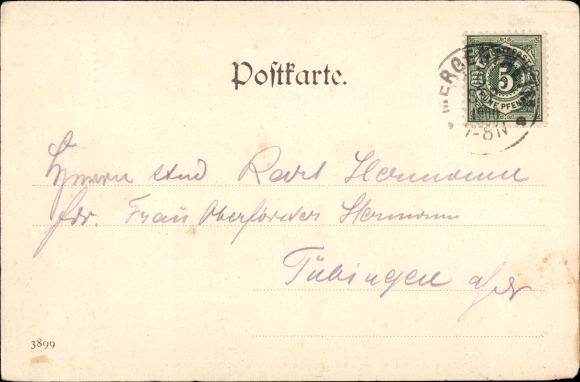 Postkarte.
MERGENTHEIM
5
FÜNF PFENNIG
7-8N
Herrn stud Karl Hermann
Adr. Frau Oberförster Hermann
Tübingen
3899